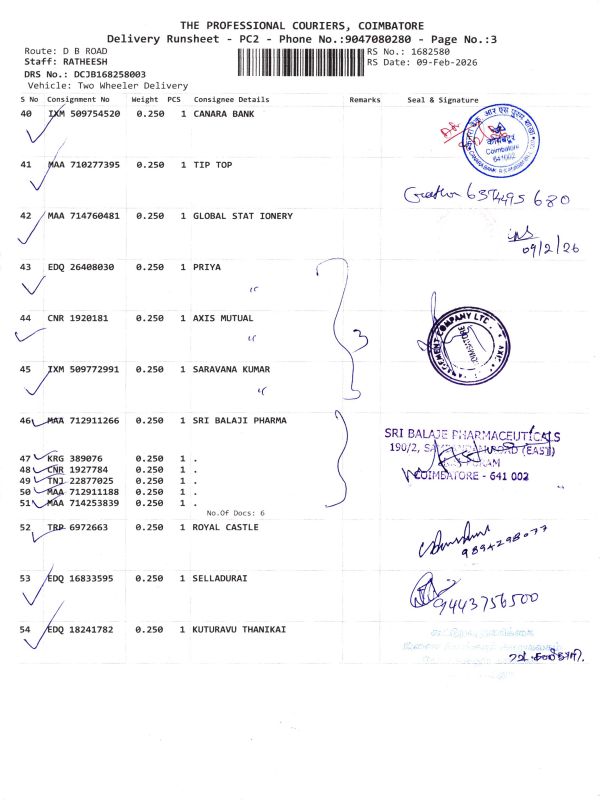 THE PROFESSIONAL COURIERS, COIMBATORE
Delivery Runsheet - PC2 - Phone No.:9047080280 - Page No.:3
Route: D B ROAD
Staff: RATHEESH
DRS No.: DCJB168258003
Vehicle: Two Wheeler Delivery
RS No.: 1682580
RS Date: 09-Feb-2026
S No Consignment No Weight PCS Consignee Details Remarks Seal & Signature
40 IXM 509754520 0.250 1 CANARA BANK
कोयंबत्तूर
Coimbatore
641002
41 MAA 710277395 0.250 1 TIP TOP
42 MAA 714760481 0.250 1 GLOBAL STAT IONERY
09/2/26
43 EDQ 26408030 0.250 1 PRIYA
"
44 CNR 1920181 0.250 1 AXIS MUTUAL
"
3
45 IXM 509772991 0.250 1 SARAVANA KUMAR
"
46 MAA 712911266 0.250 1 SRI BALAJI PHARMA
SRI BALAJE PHARMACEUTICALS
190/2, ROAD (EAST)
COIMBATORE - 641 002
47 KRG 389076 0.250 1 .
48 CNR 1927784 0.250 1 .
49 TNJ 22877025 0.250 1 .
50 MAA 712911188 0.250 1 .
51 MAA 714253839 0.250 1 .
No.Of Docs: 6
52 TRP 6972663 0.250 1 ROYAL CASTLE
9894298077
53 EDQ 16833595 0.250 1 SELLADURAI
9443756500
54 EDQ 18241782 0.250 1 KUTURAVU THANIKAI